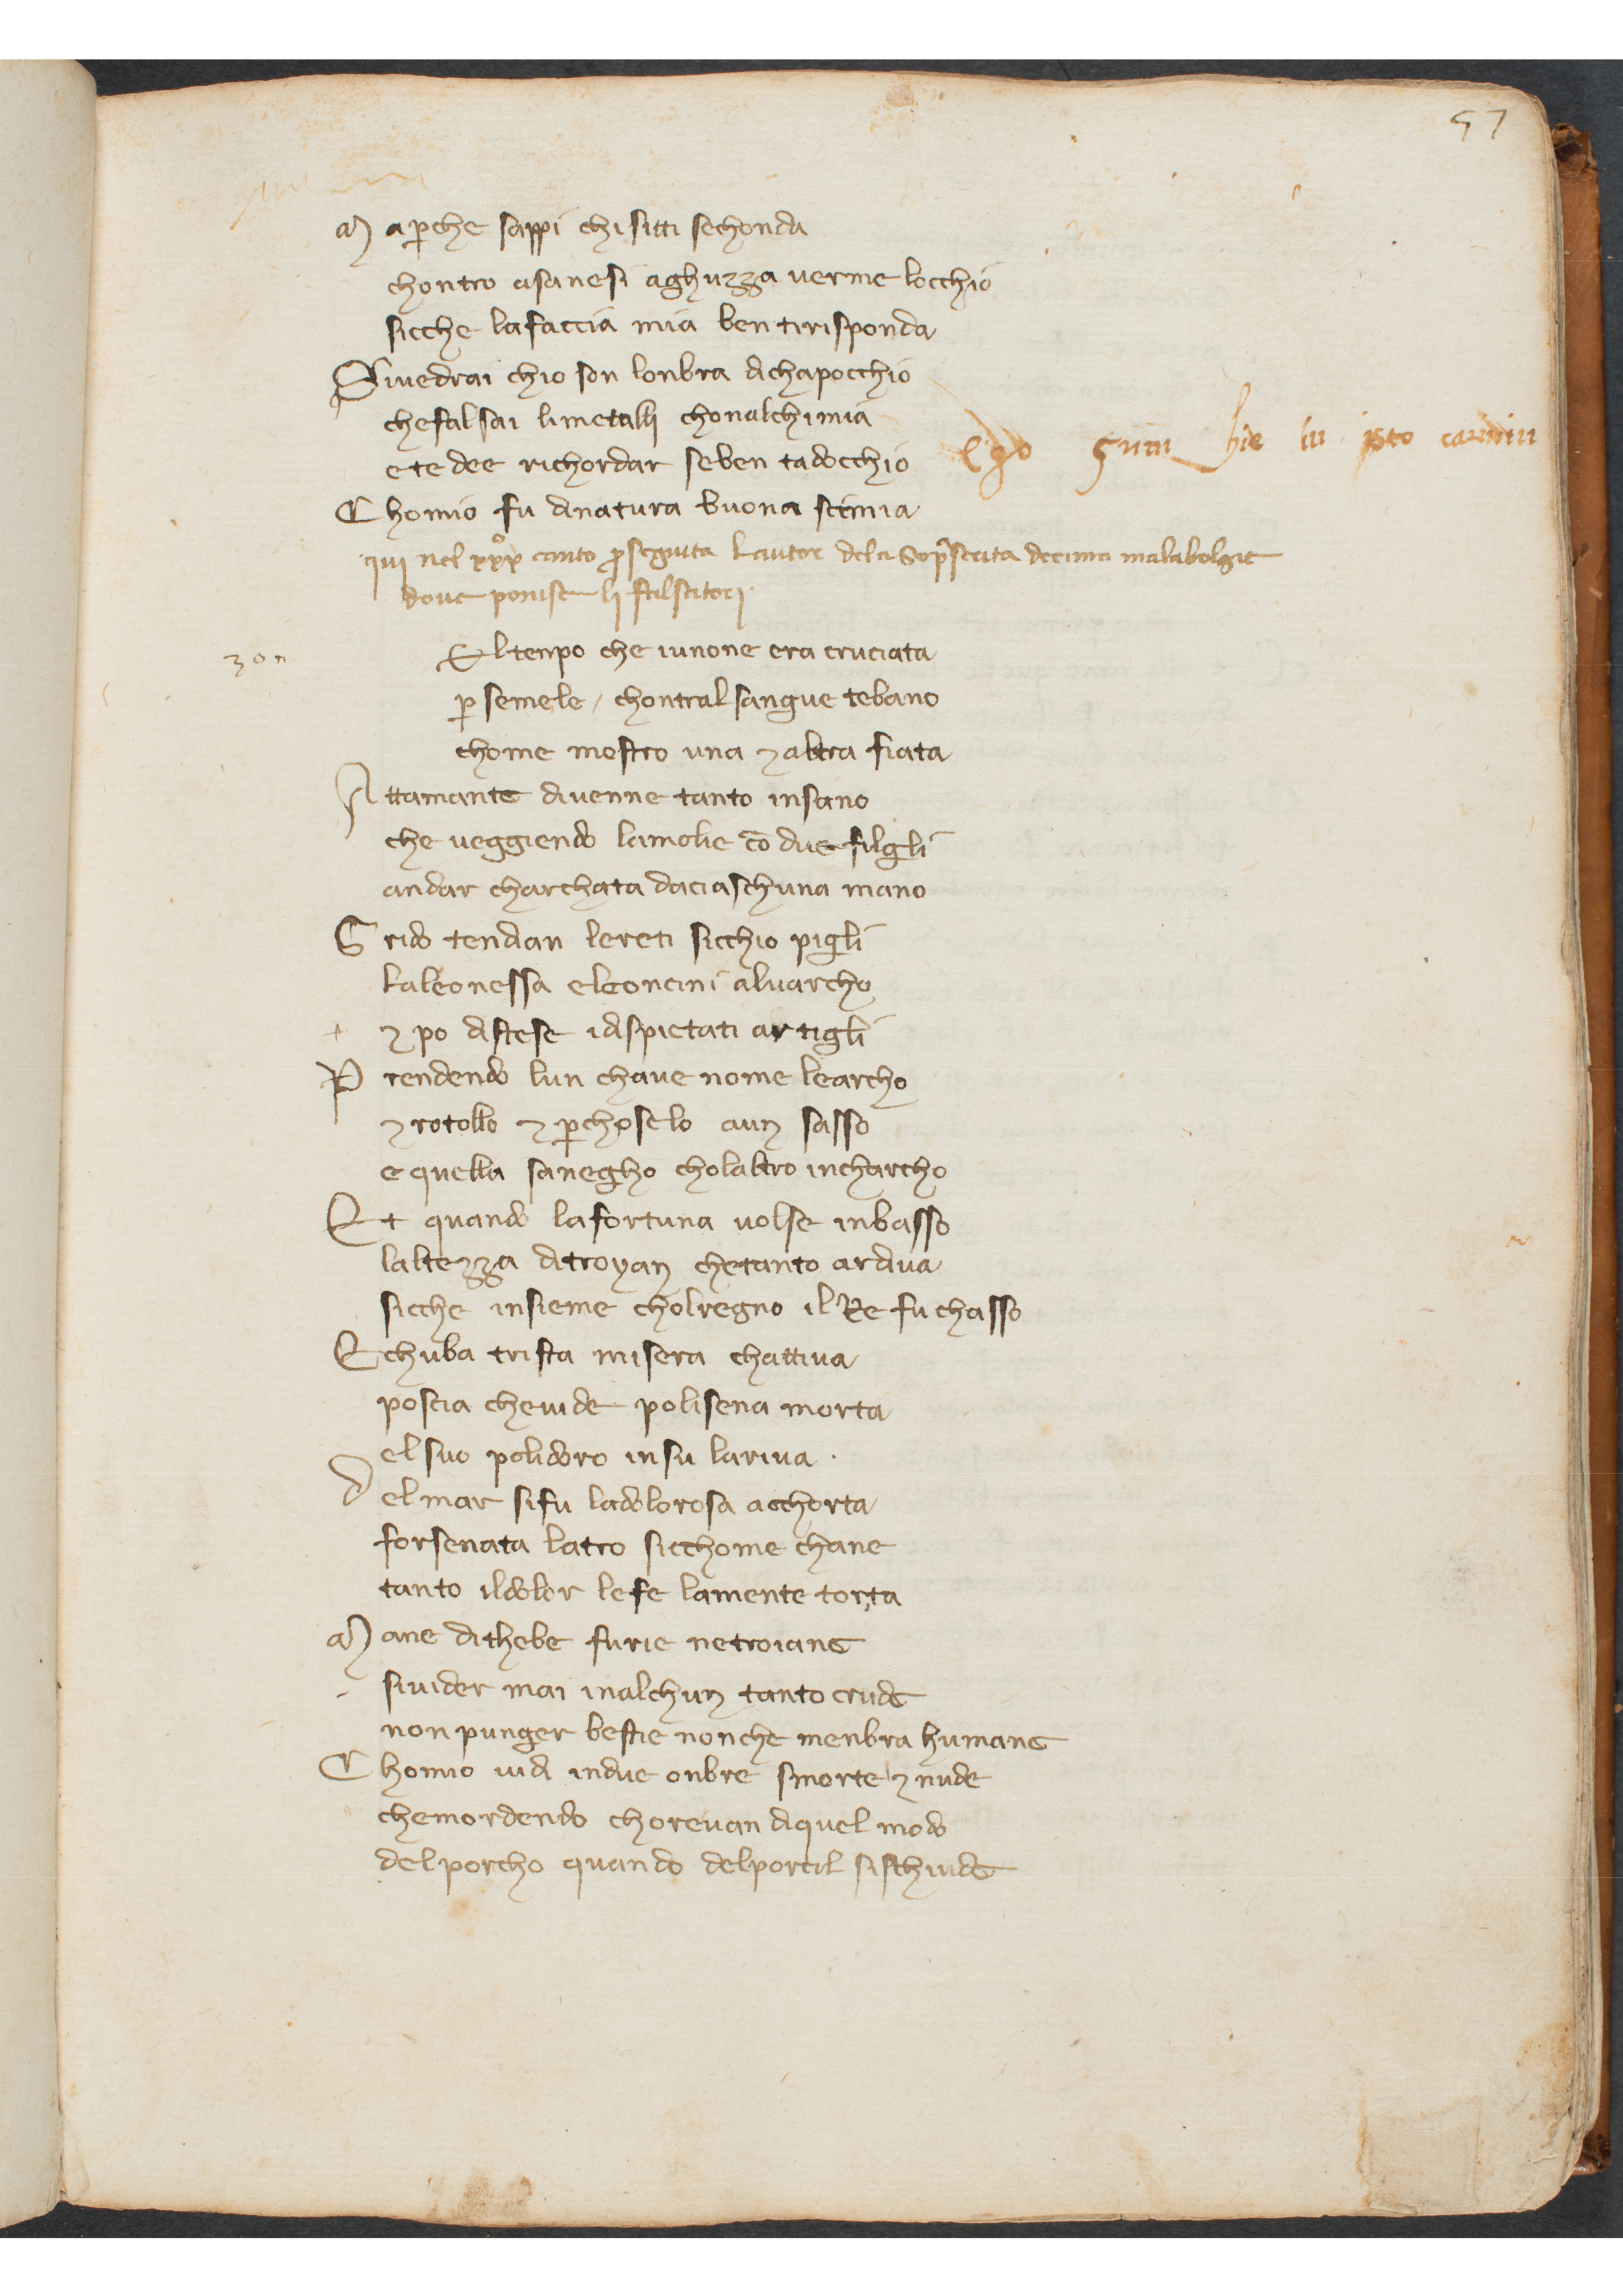 57
M a ꝑche sappi chi sitti sechonda
chontro asanesi aghuzza uerme locchio
sicche lafaccia mia ben tirisponda
Siuedrai chio son lonbra dichapocchio
chefalsai limetalli chonalchimia
ete dee richordar seben tadocchio
Ego sum hic in isto
Chomio fu dinatura buona scimia
qui nel xxxº canto ꝓseguita lautore dela decima malabolgie
doue
30
El tenpo che iunone era cruciata
ꝑ semele / chontral sangue tebano
chome mostro una ⁊ altra fiata
Attamante diuenne tanto insano
che ueggiendo lamolie cō due filgli
andar charchata daciaschuna mano
Grido tendian lereti sicchio pigli
laleonessa eleoncini aluarcho
⁊ po distese idispietati artigli
Prendendo lun chaue nome learcho
⁊ rotollo ⁊ ꝑchoselo aun sasso
e quella sanegho cholaltro incharcho
Et quando lafortuna uolse inbasso
laltezza ditroyan chetanto ardiua
sicche insieme cholregno il Re fu chasso
Echuba trista misera chattiua
poscia cheuide polisena morta
el suo polidoro insu lariua .
del mar sifu ladolorosa acchorta
forsenata latro sicchome chane
tanto ildolor lefe lamente torta
Mane dithebe furie netroiane
siuider mai inalchun tanto crude
non punger bestie nonche menbra humane
Chomio uidi indue onbre smorte ⁊ nude
chemordendo choreuan diquel modo
delporcho quando delporcil sischiude